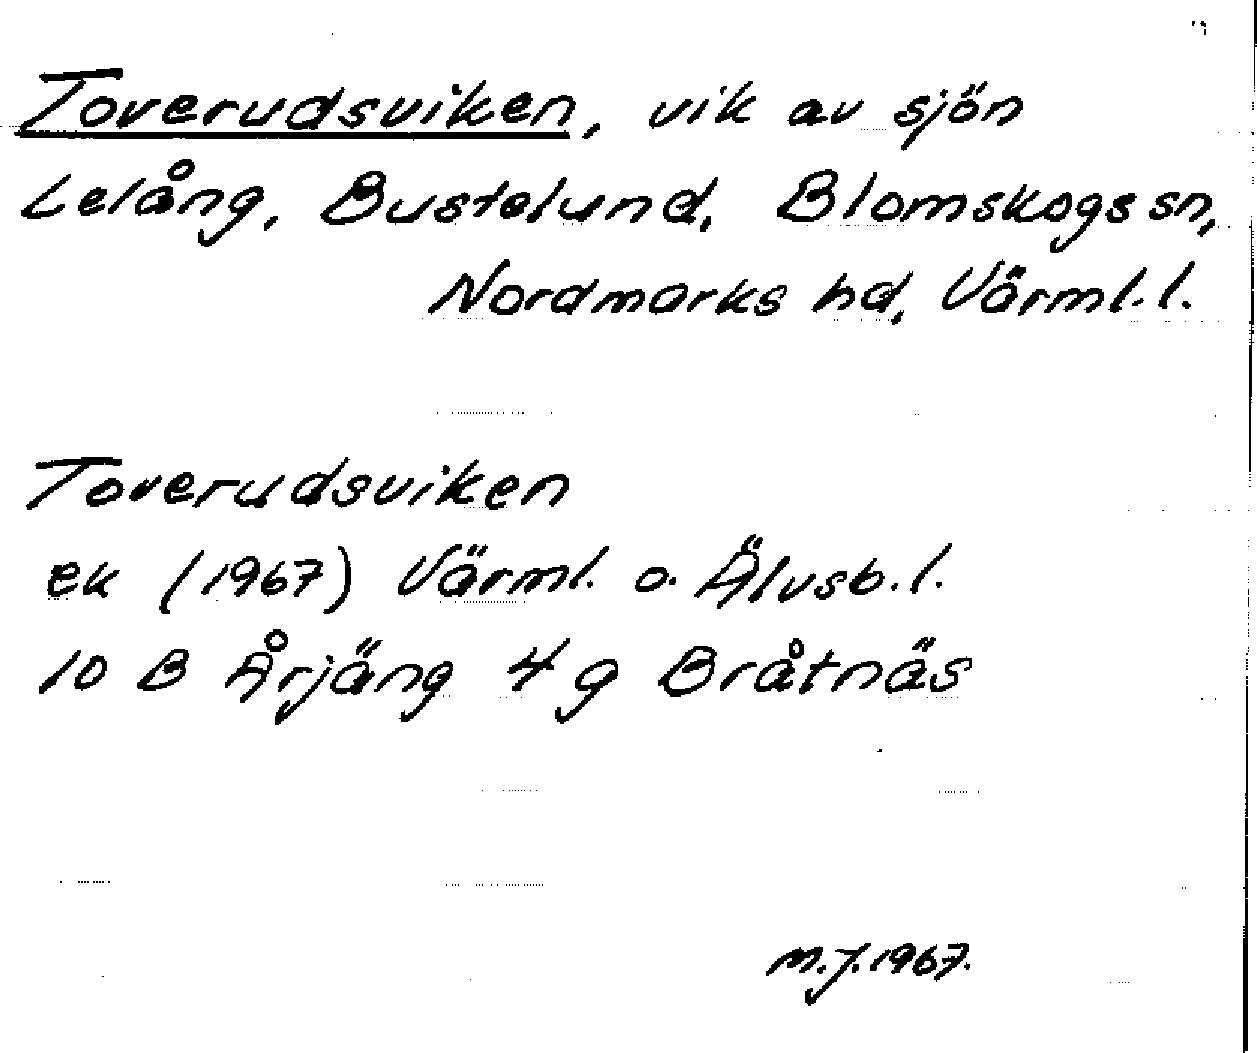 Toverudsviken, vik av sjön
Lelång, Bustelund, Blomskogs sn,
Nordmarks hd, Värml. l.
Toverudsviken
ek (1967) Värml. o. Älvsb. l.
10 B Årjäng 4 g Bråtnäs
M.J. 1967.